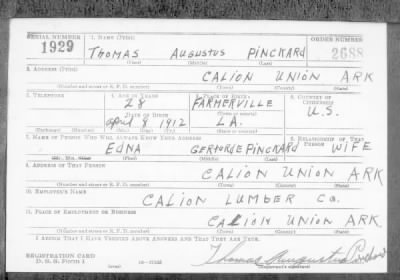 SERIAL NUMBER 1. NAME (Print) ORDER NUMBER
1929 THOMAS AUGUSTUS PINCKARD 2688
(First) (Middle) (Last)
2. ADDRESS (Print)
CALION UNION ARK
(Number and street or R. F. D. number) (Town) (County) (State)
3. TELEPHONE 4. AGE IN YEARS 5. PLACE OF BIRTH 6. COUNTRY OF CITIZENSHIP
28 FARMERVILLE
DATE OF BIRTH (Town or county) U.S.
April 8 1912 LA.
(Exchange) (Number) (Mo.) (Day) (Yr.) (State or country)
7. NAME OF PERSON WHO WILL ALWAYS KNOW YOUR ADDRESS 8. RELATIONSHIP OF THAT PERSON
EDNA GERTURDE PINCKARD WIFE
(Mr., Mrs., Miss) (First) (Middle) (Last)
9. ADDRESS OF THAT PERSON
CALION UNION ARK
(Number and street or R. F. D. number) (Town) (County) (State)
10. EMPLOYER'S NAME
CALION LUMBER CO.
11. PLACE OF EMPLOYMENT OR BUSINESS
CALION UNION ARK
(Number and street or R. F. D. number) (Town) (County) (State)
I AFFIRM THAT I HAVE VERIFIED ABOVE ANSWERS AND THAT THEY ARE TRUE.
REGISTRATION CARD Thomas Augustus Pinckard
D. S. S. Form 1 (Registrant's signature)